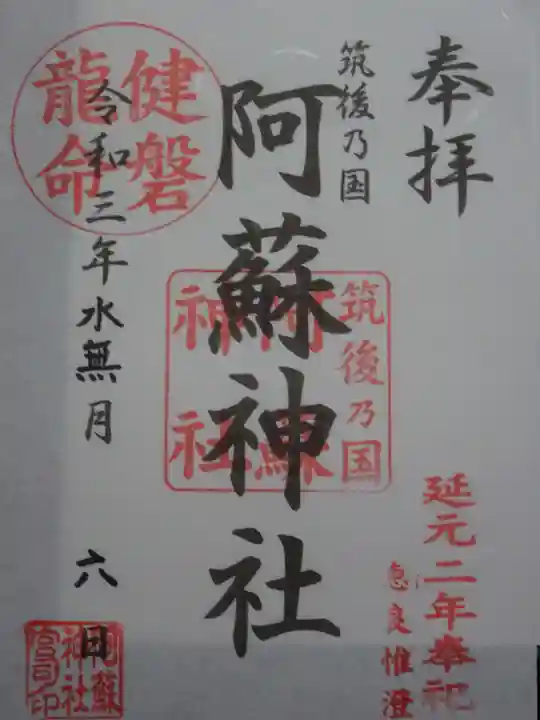 奉拝
延元二年奉祀
惟澄
筑後乃国
阿蘇神社
筑後乃国
阿蘇
神社
健磐
龍命
令和三年水無月六日
阿蘇
神社
宮司印